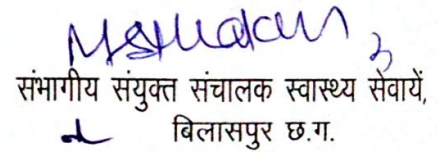 संभागीय संयुक्त संचालक स्वास्थ्य सेवायें,
बिलासपुर छ.ग.